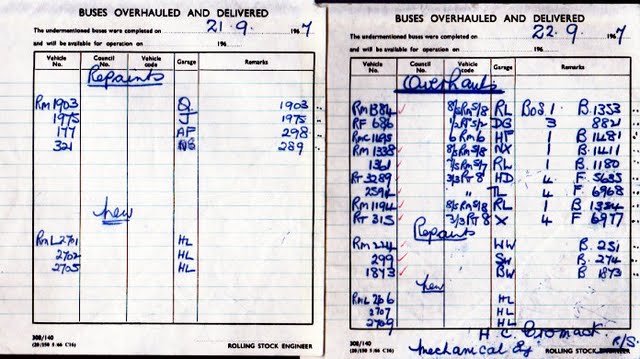 BUSES OVERHAULED AND DELIVERED
The undermentioned buses were completed on 21.9. 1967
and will be available for operation on 196
Vehicle No. Council No. Vehicle code Garage Remarks
Repaints
RM1903 Q 1903
1975 J 1975
177 AF 298
321 NB 289
New
RML2701 HL
2702 HL
2705 HL
308/140
ROLLING STOCK ENGINEER
BUSES OVERHAULED AND DELIVERED
The undermentioned buses were completed on 22.9. 1967
and will be available for operation on 196
Vehicle No. Council No. Vehicle code Garage Remarks
Overhauls
RM1384 8/5RM5/8 RL Bods 1 B.1353
RF 686 DG 3 8821
RMC 6RM6 HF 1 B.1481
RM1338 8/5RM5/8 NX 1 B.1411
1361 RL 1 B.1180
RT3289 3/3RT8 HD 4 F.5635
" TL 4 F.6968
RM1194 8/5RM5/8 RL 1 B
RT 315 3/3RT8 X 4 F.6977
Repaints
RM224 WW B.251
299 SW B.274
1873 BW B 1873
New
RML HL
2707 HL
2709 HL
H.C. Cromack.
308/140
Mechanical Eng. R/S
ROLLING STOCK ENGINEER